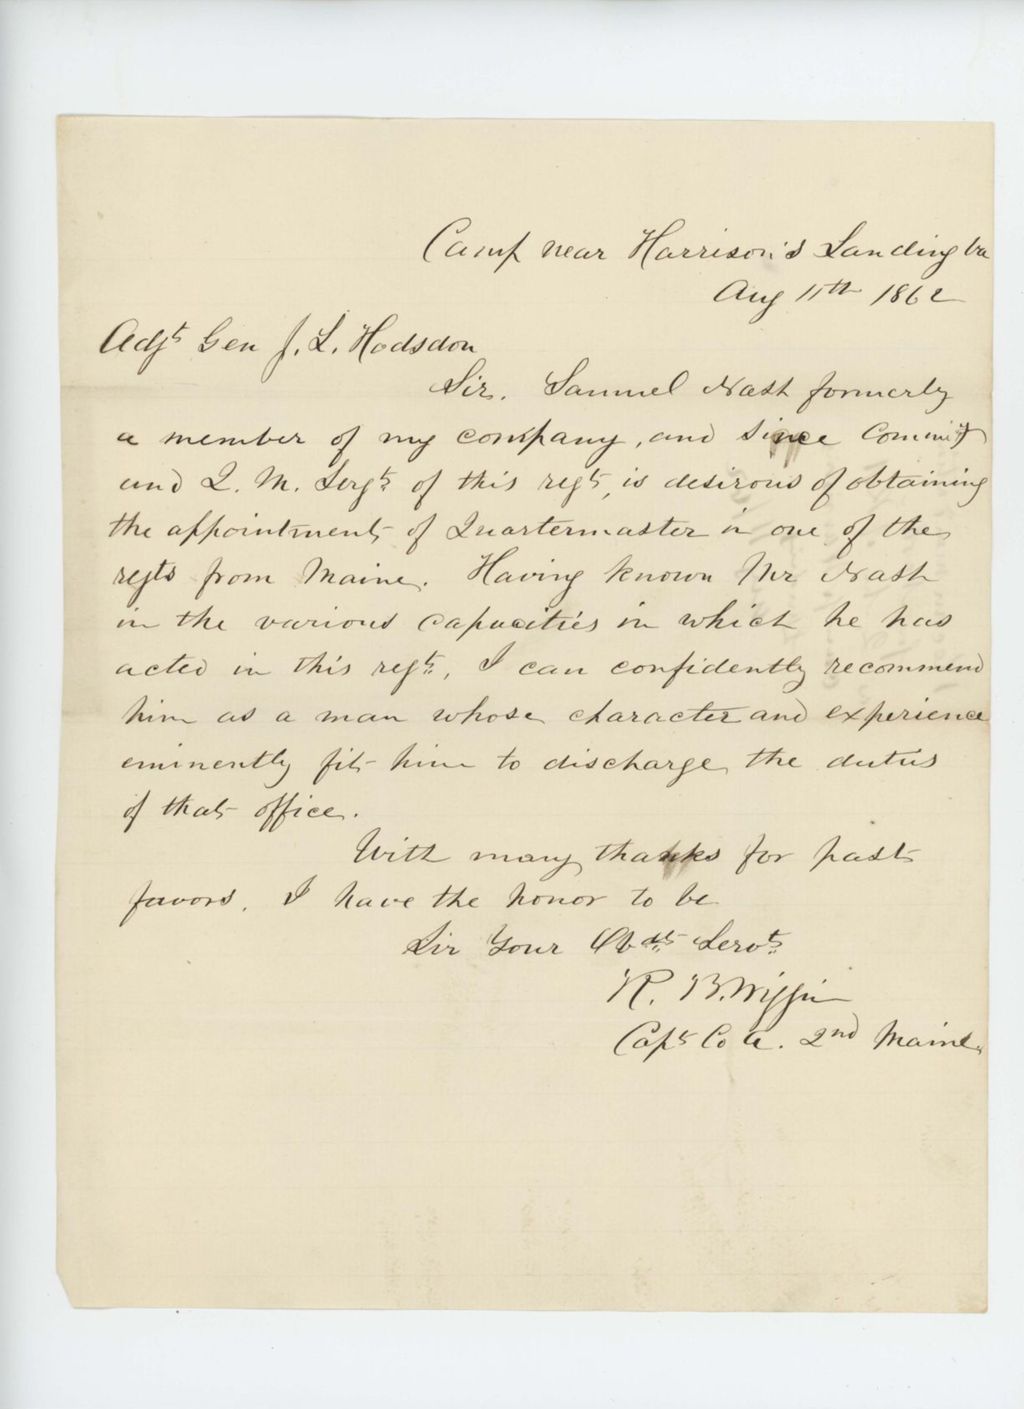 Camp near Harrison's Landing Va
Aug 11th 1862
Adjt Gen J. L. Hodsdon
Sir. Samuel Nash formerly
a member of my company, and since Commiss
and Q. M. Sergt of this regt, is desirous of obtaining
the appointment of Quartermaster in one of the
regts from Maine. Having known Mr Nash
in the various capacities in which he has
acted in this regt, I can confidently recommend
him as a man whose character and experience
eminently fit him to discharge the duties
of that office.
With many thanks for past
favors, I have the honor to be
Sir Your Obdt Servt
R. B. Wiggin
Capt Co A. 2nd Maine